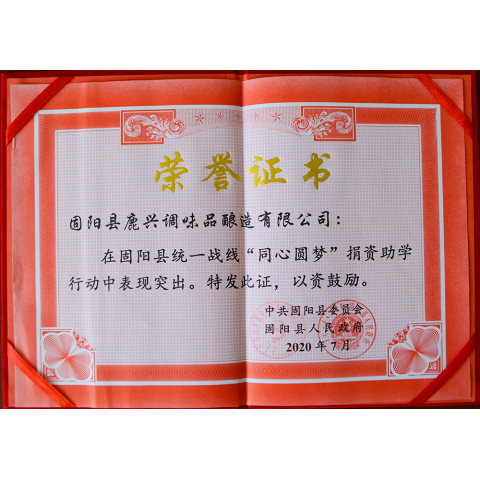 荣誉证书
固阳县鹿兴调味品酿造有限公司：
在固阳县统一战线“同心圆梦”捐资助学
行动中表现突出。特发此证，以资鼓励。
中共固阳县委员会
固阳县人民政府
2020年7月